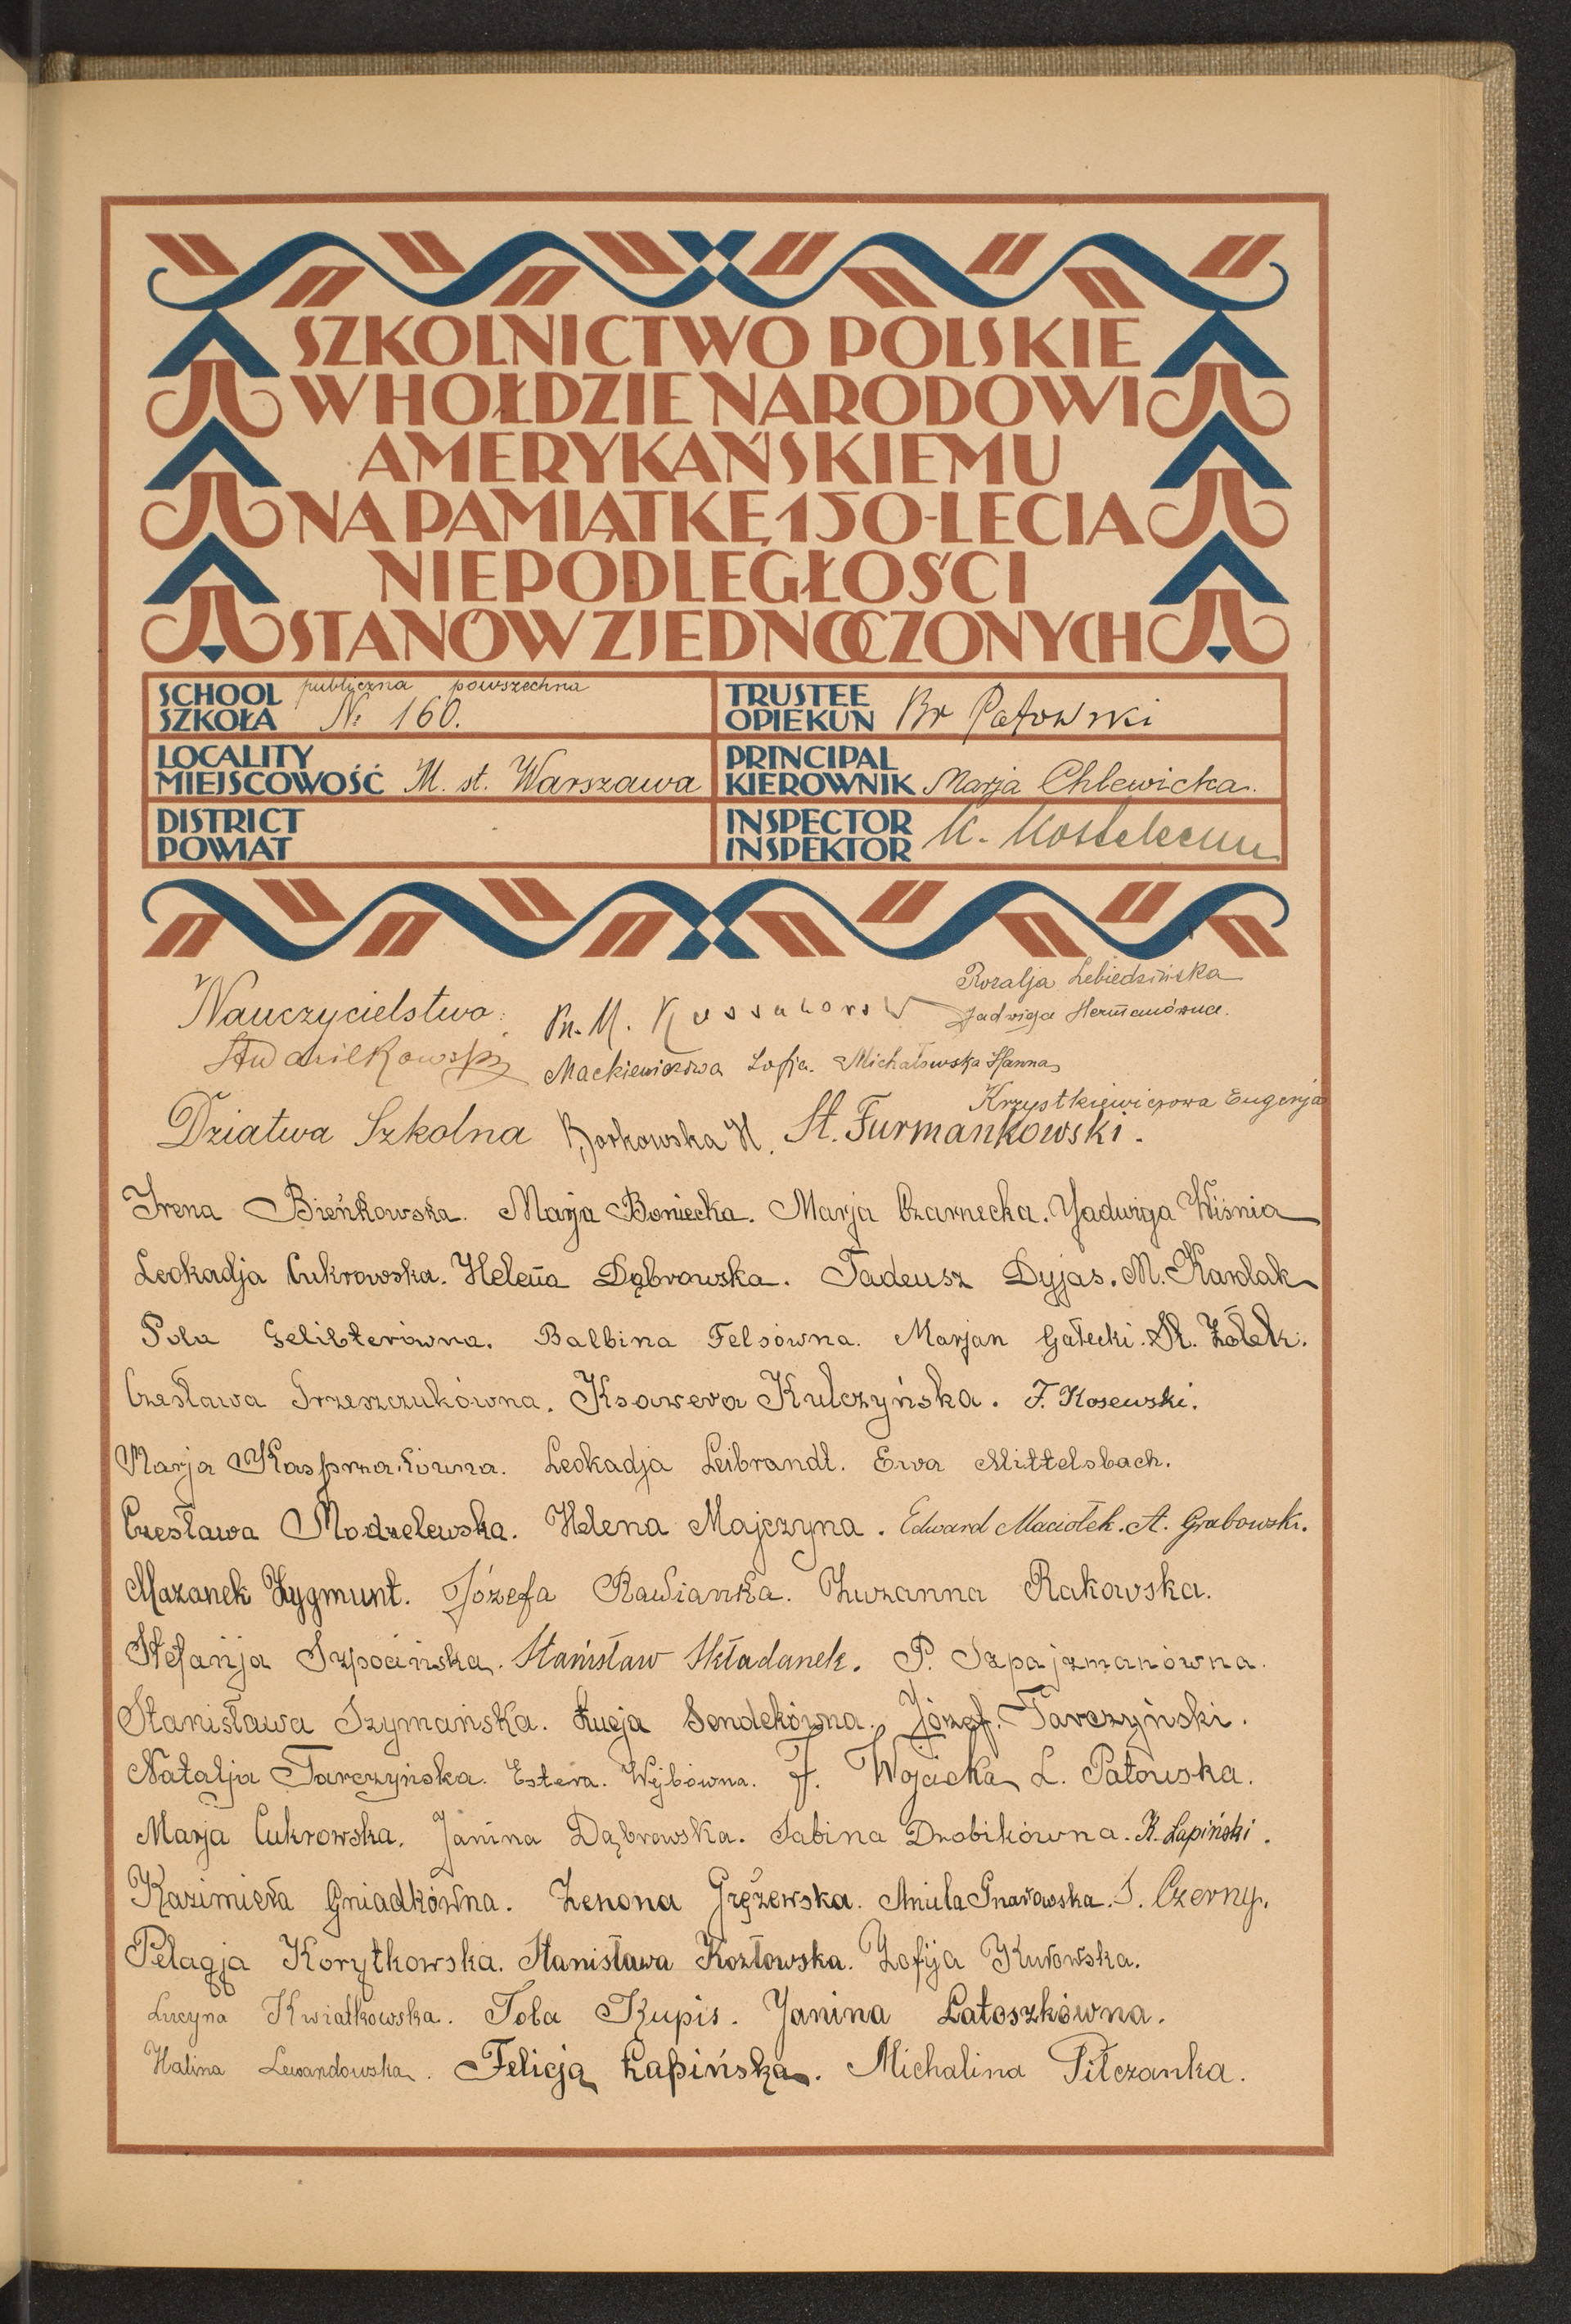 SZKOLNICTWO POLSKIE
W HOŁDZIE NARODOWI
AMERYKAŃSKIEMU
NA PAMIĄTKĘ 150-LECIA
NIEPODLEGŁOŚCI
STANÓW ZJEDNOCZONYCH
SCHOOL publiczna powszechna
SZKOŁA № 160.
TRUSTEE
OPIEKUN Br Patowski
LOCALITY
MIEJSCOWOŚĆ M. st. Warszawa
PRINCIPAL
KIEROWNIK Marja Chlewicka.
DISTRICT
POWIAT
INSPECTOR
INSPEKTOR K.
Rozalja Lebiedzińska
Nauczycielstwo:
Jadwiga Hermanówna.
Mackiewiczowa Zofja. Michałowska Hanna
Krzystkiewiczowa Eugenja
Dziatwa Szkolna Borkowska H. St. Furmankowski.
Irena Bieńkowska. Marja Boniecka. Marja Czarnecka. Jadwiga Wiśnia
Leokadja Cukrowska. Helena Dąbrowska. Tadeusz Dyjas. M. Karolak
Pola Gelibterówna. Balbina Felsówna. Marjan Gałecki. St. Żółek.
Czesława Grzeszczukówna. Ksawera Kulczyńska. F. Kosewski.
Marja Kasprzakówna. Leokadja Leibrandt. Ewa Mittelsbach.
Czesława Modzelewska. Helena Majczyna. Edward Maciołek. A. Grabowski.
Mazanek Zygmunt. Józefa Rawianka. Zuzanna Rakowska.
Stefanja Szpocińska. Stanisław Składanek. P. Szpajzmanówna.
Stanisława Szymańska. Łucja Sendekówna. Józef. Tarczyński.
Natalja Tarczyńska. Estera. Wejbówna. F. Wojacka L. Patowska.
Marja Cukrowska. Janina Dąbrowska. Sabina Drobikówna. K. Łapiński.
Kazimiera Gniadkówna. Zenona Grężewska. Aniela Gnarowska. S. Czerny.
Pelagja Korytkowska. Stanisława Kozłowska. Zofija Kurowska.
Lucyna Kwiatkowska. Tola Kupis. Janina Latoszkówna.
Halina Lewandowska. Felicja Łapińska. Michalina Pilczanka.